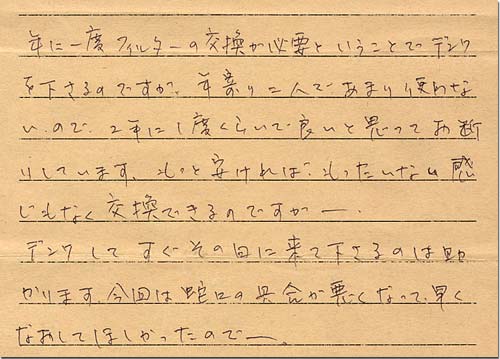 年に一度フィルターの交換が必要ということでデンワ
を下さるのですが、年寄り二人であまり使わな
いので、2年に1度くらいで良いと思ってお断
りしています。もっと安ければ、もったいない感
じもなく交換できるのですがー。
デンワしてすぐその日に来て下さるのは助
かります。今回は蛇口の具合が悪くなって、早く
なおしてほしかったのでー。